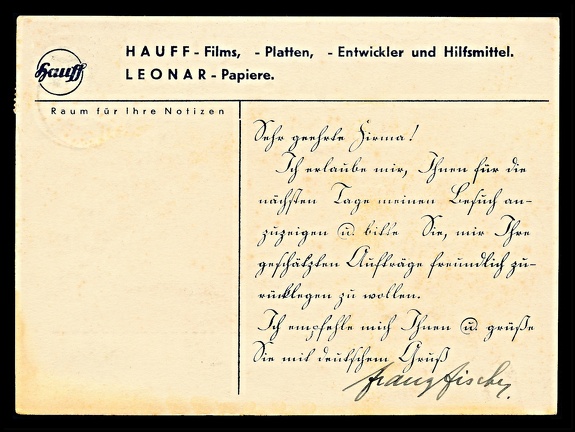 Hauff
HAUFF - Films, - Platten, - Entwickler und Hilfsmittel.
LEONAR - Papiere.
Raum für Ihre Notizen
Sehr geehrte Firma!
Ich erlaube mir, Ihnen für die
nächsten Tage meinen Besuch an-
zuzeigen u. bitte Sie, mir Ihre
geschätzten Aufträge freundlich zu-
rücklegen zu wollen.
Ich empfehle mich Ihnen u. grüße
Sie mit deutschem Gruß
Franz Fischer.